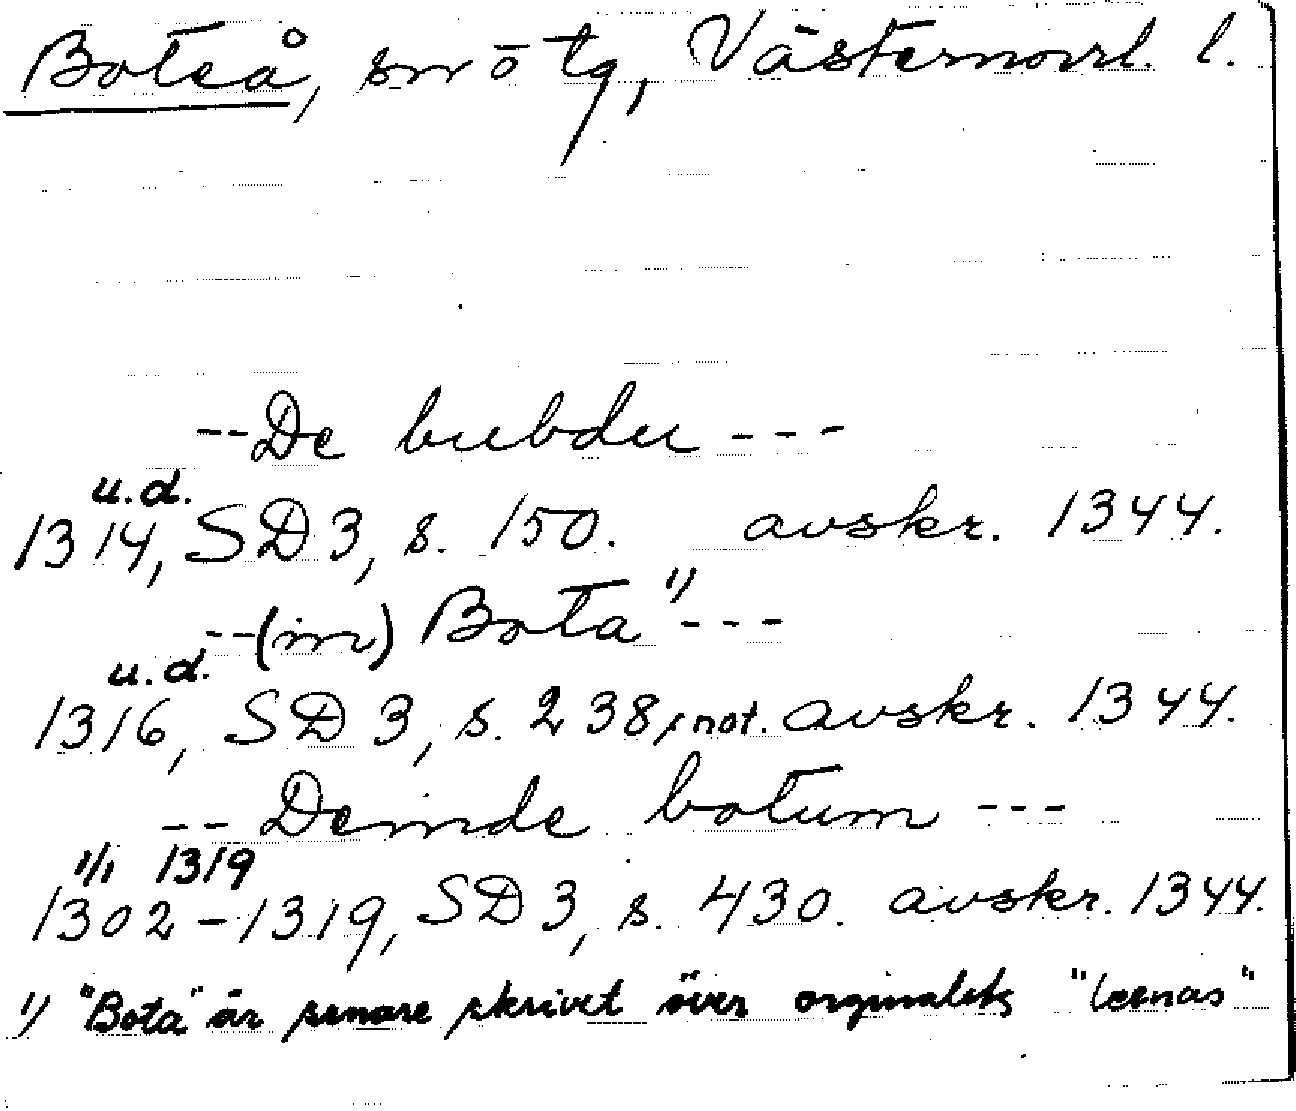 Boteå, sn o tg, Västernorrl. l.
--De bubdu---
u.d.
1314, SD 3, s. 150. avskr. 1344.
--(in) Bota 1)---
u.d.
1316, SD 3, s. 238, not. avskr. 1344.
-- Deinde botum ---
1/1 1319
1302-1319, SD 3, s. 430. avskr. 1344.
1) "Bota" är senare skrivet över orginalets